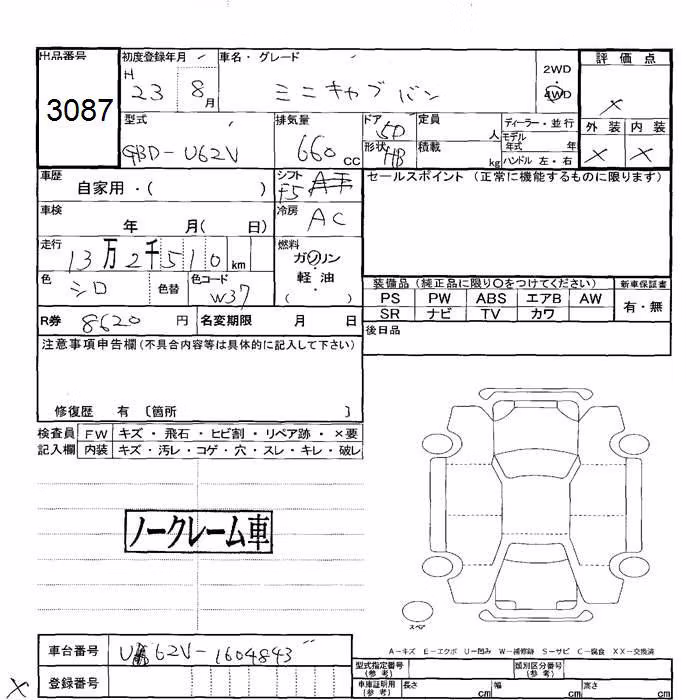 出品番号 初度登録年月 車名・グレード 2WD 評価点
3087 H 23 8月 ミニキャブバン 4WD ×
型式 排気量 ドア 5D 定員 人 ディーラー・並行 外装 内装
GBD-U62V 660 cc 形状 HB 積載 kg モデル年式 年 × ×
ハンドル 左・右
車歴 自家用・( ) シフト F5 AT セールスポイント (正常に機能するものに限ります)
車検 年 月( 日) 冷房 AC
走行 13万2千510 km 燃料 ガソリン
軽・油
( )
色 シロ 色替 色コード W37 装備品 (純正品に限り○をつけてください) 新車保証書
PS PW ABS エアB AW 有・無
R券 8620 円 名変期限 月 日 SR ナビ TV カワ
後日品
注意事項申告欄 (不具合内容等は具体的に記入して下さい)
修復歴 有 〔箇所 〕
検査員 FW キズ・飛石・ヒビ割・リペア跡・×要
記入欄 内装 キズ・汚レ・コゲ・穴・スレ・キレ・破レ
ノークレーム車
スペア
A-キズ E-エクボ U-凹み W-補修跡 S-サビ C-腐食 XX-交換済
車台番号 U62V-1604843
型式指定番号 (参考) 類別区分番号 (参考)
× 登録番号 車庫証明用 (参考) 長さ cm 幅 cm 高さ cm